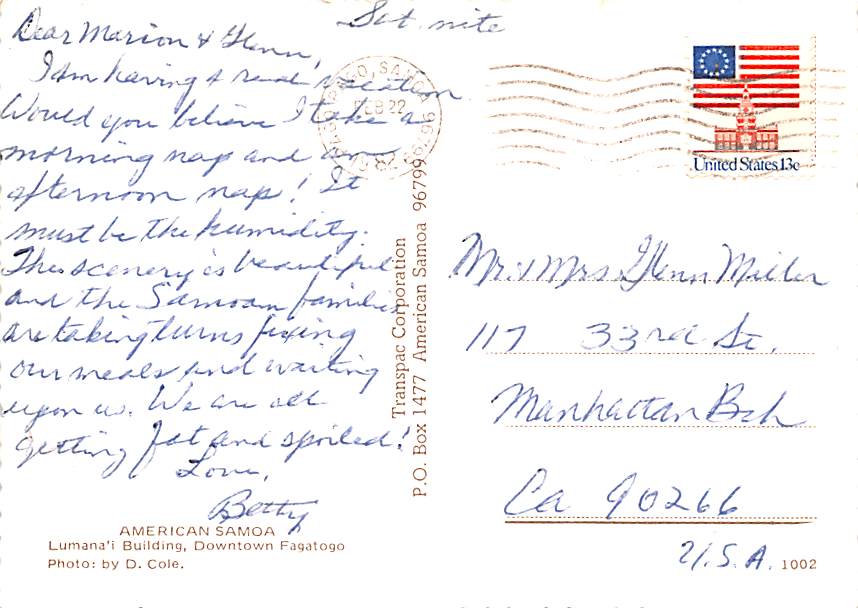 Sat. nite
Dear Marion & Glenn,
I am having a real vacation.
Would you believe I take a
morning nap and an
afternoon nap! It
must be the humidity.
The scenery is beautiful
and the Samoan families
are taking turns fixing
our meals and waiting
upon us. We are all
getting fat and spoiled!
Love,
Betty
AMERICAN SAMOA
Lumana'i Building, Downtown Fagatogo
Photo: by D. Cole.
Transpac Corporation
P.O. Box 1477 American Samoa 96799
FEB 22
United States 13c
Mr & Mrs Glenn Miller
117 33rd St.
Manhattan Bch
Ca 90266
U.S.A.
1002